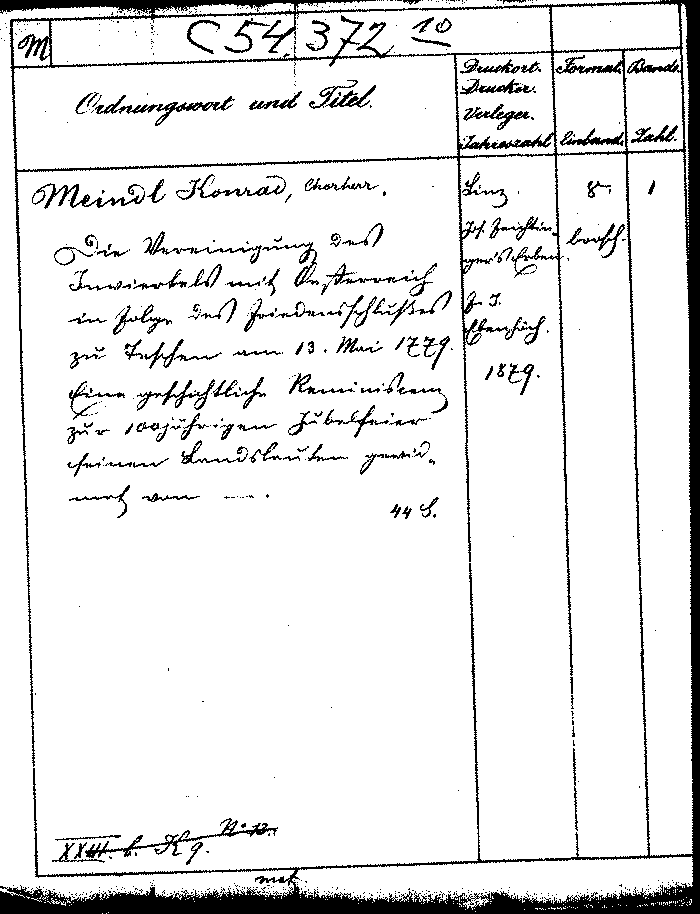 M
C 54.372 10
Ordnungswort und Titel.
Druckort.
Drucker.
Verleger.
Jahreszahl
Format.
Einband.
Bande.
Zahl.
Meindl Konrad, Chorherr.
Die Vereinigung des
Innviertels mit Oesterreich
in Folge des Friedensschlußes
zu Teschen am 13. Mai 1779.
Eine geschichtliche Reminiscenz
zur 100jährigen Jubelfeier
seinen Landsleuten gewid-
met von —.
44 S.
Linz.
Jos. Feichtin-
ger's Erben.
Ebenhöch.
1879.
8°.
brosch.
1
No 12.
XXIII. b. K 9.